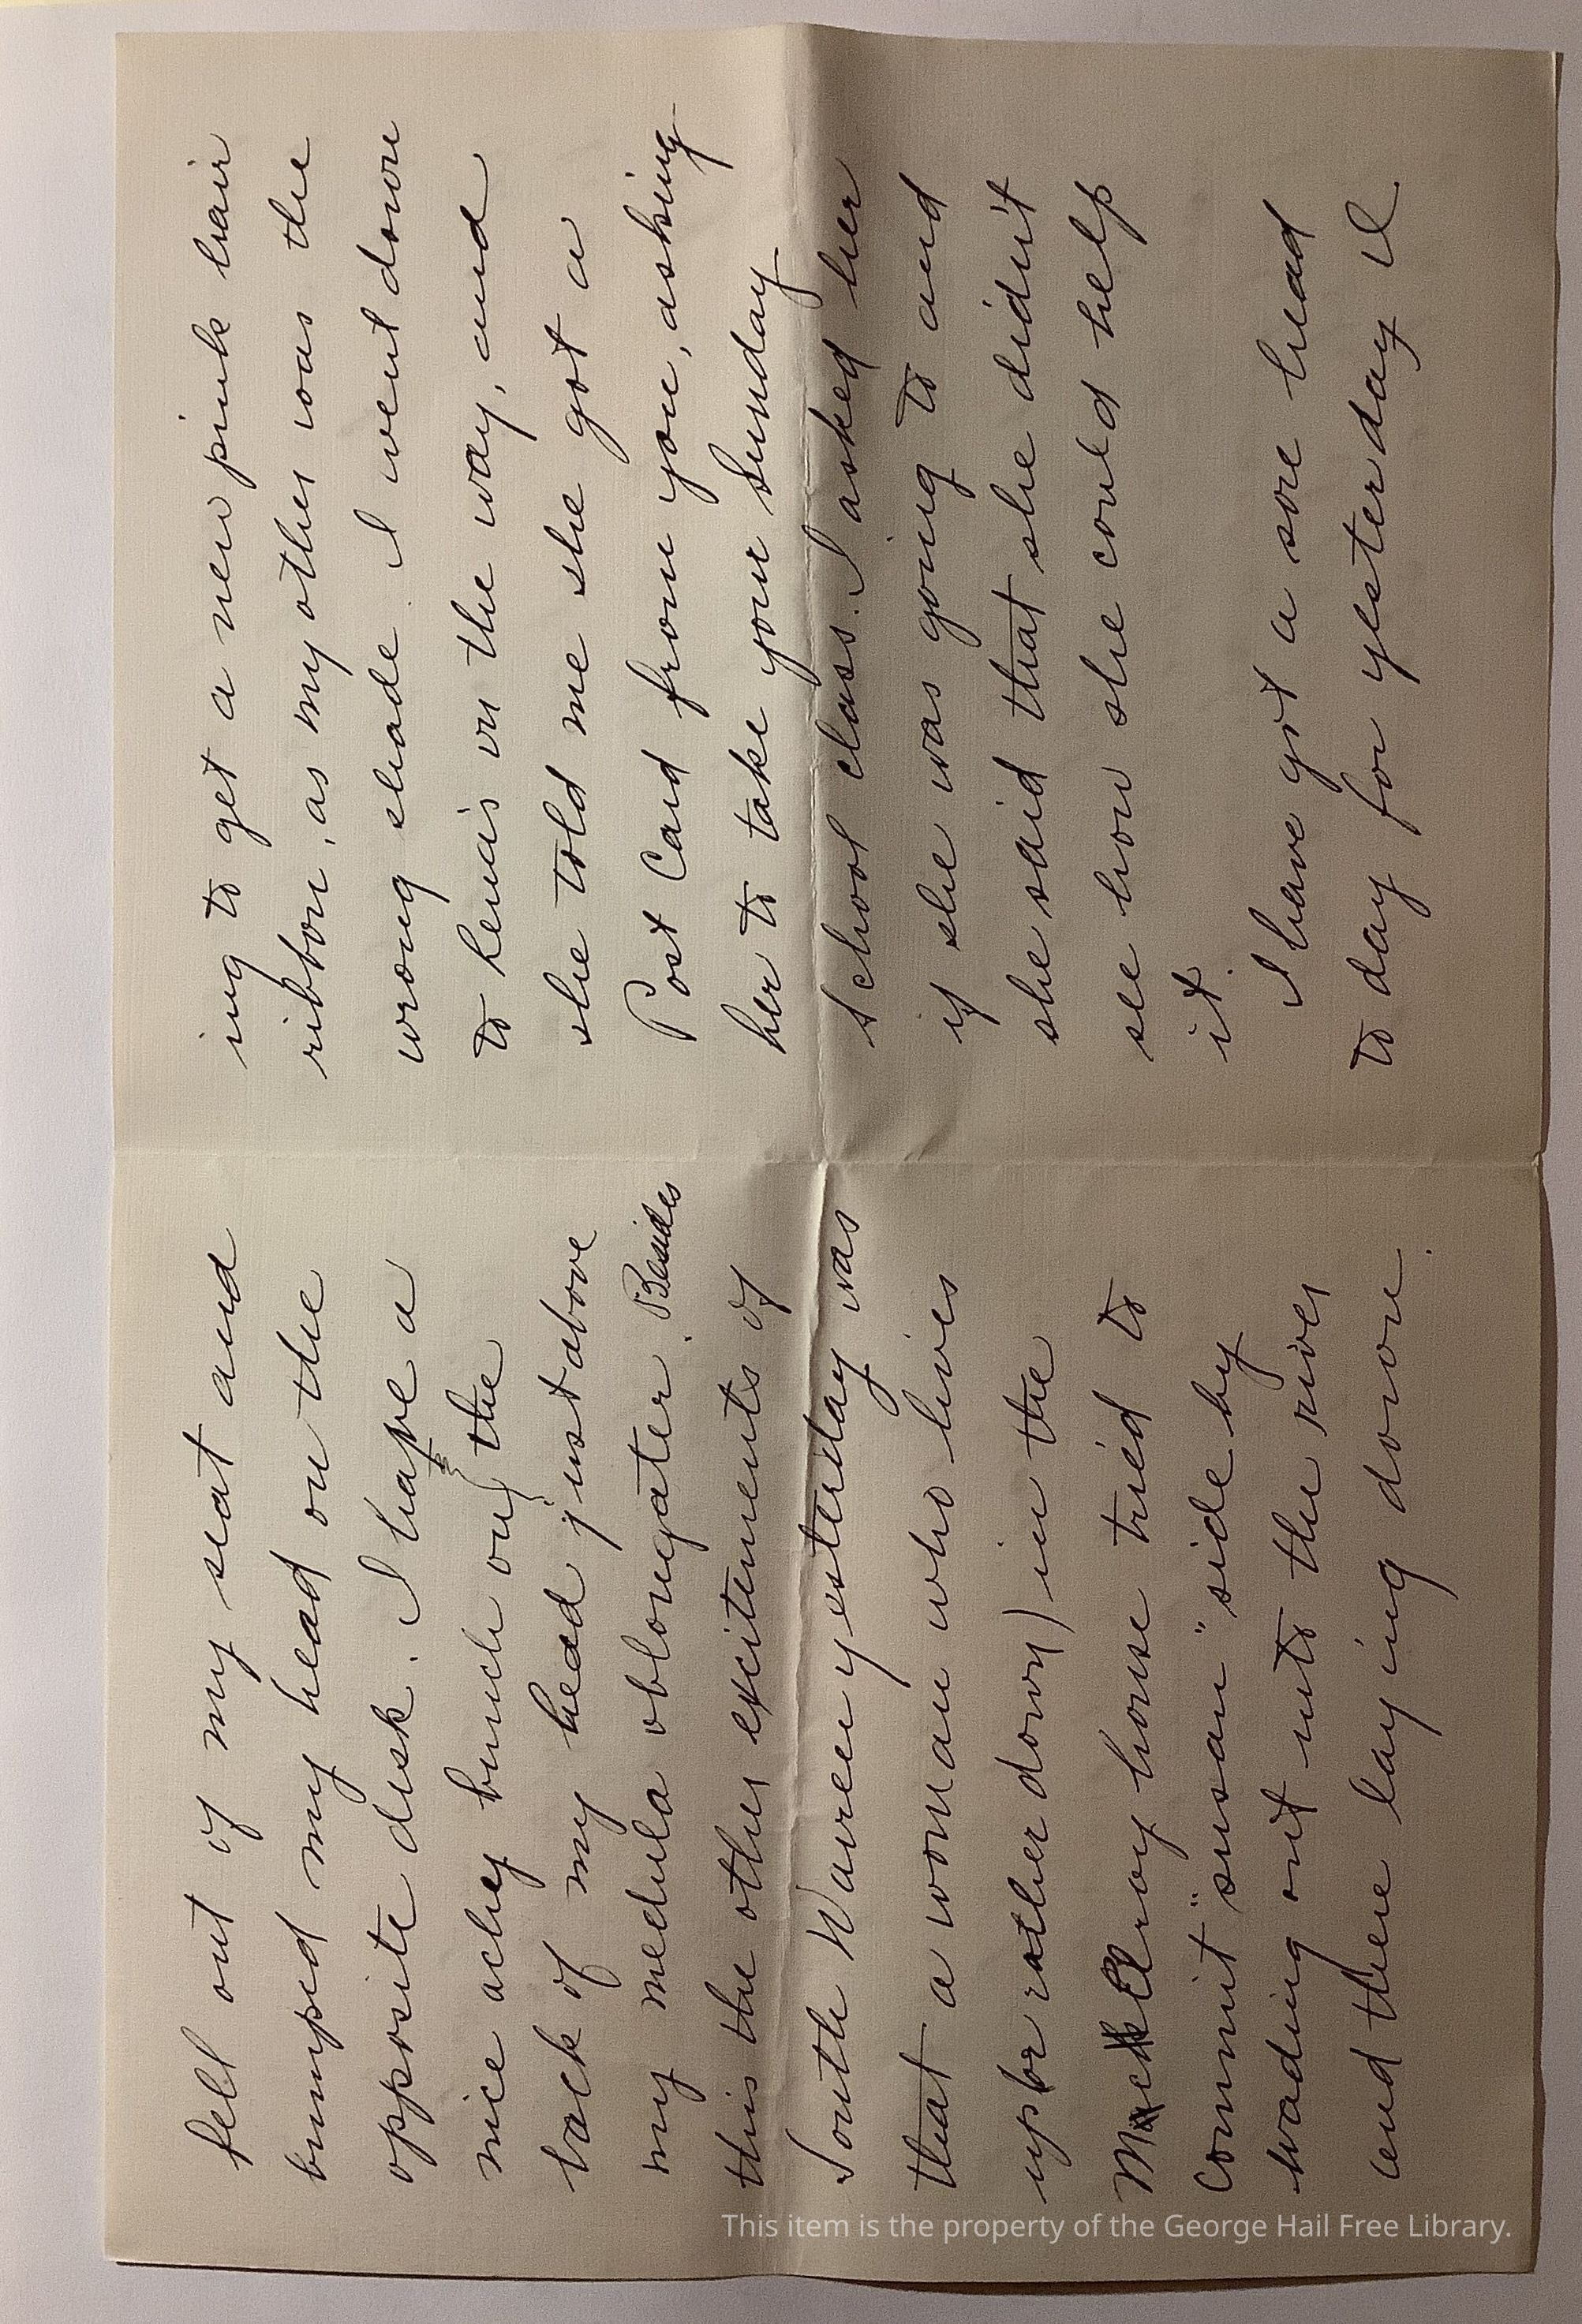 ing to get a new pink hair
ribbon, as my other was the
wrong shade. I went down
to Lena's on the way, and
she told me she got a
Post Card from you, asking
her to take your Sunday
School class. I asked her
if she was going to and
she said that she didn't
see how she could help
it.
I have got a sore head
to day for yesterday I
fell out of my seat and
bumped my head on the
opposite disk. I have a
nice achey bunch on the
back of my head just above
my medula oblongater. Besides
this the other excitements of
South Warren yesterday was
that a woman who lives
up (or rather down) in the
McElroy house tried to
commit "susan" side by
wading out into the river
and there laying down.
This item is the property of the George Hail Free Library.